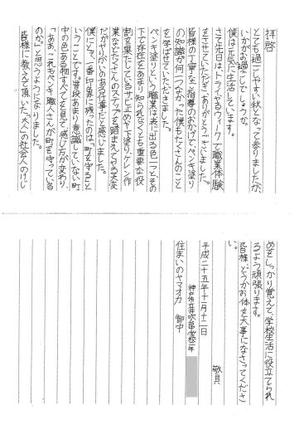 拝啓
とても過ごしやすい秋となって参りましたが
いかがお過ごしでしょうか。
僕は元気に生活しています。
さて先日は、トライやるウィークで職業体験
をさせていただき、ありがとうございました。
皆様の丁寧なご指導のおかげで、ペンキ塗り
の知識が何一つなかった僕もたくさんのこと
を学ばせていただきました。
ペンキ塗りという職業は光、出る色一つとその
下で存在をあまり知られなくとも重要な役
割を果たしているサビ止め、下塗り、ケレン作
業などたくさんのステップを踏まえてやる大変
だがやりがいのあるお仕事だと感じました。
僕にとって一番印象に残ったのは「町を守ると
いうことです。普段あまり意識していない町
中の色ある物すべてを見て感じ方が変わり、
「ああ、これもペンキ職人さんが町を守っている
のか」と思うようになりました。
皆様に教えて頂いた「大人」の社会人のけじ
めをしっかり覚えて、学校生活に役立てられ
るよう頑張ります。
皆様、どうかお体を大事になさってくださ
い。
敬具
平成二十五年十一月十二日
住まいのヤマオカ 御中